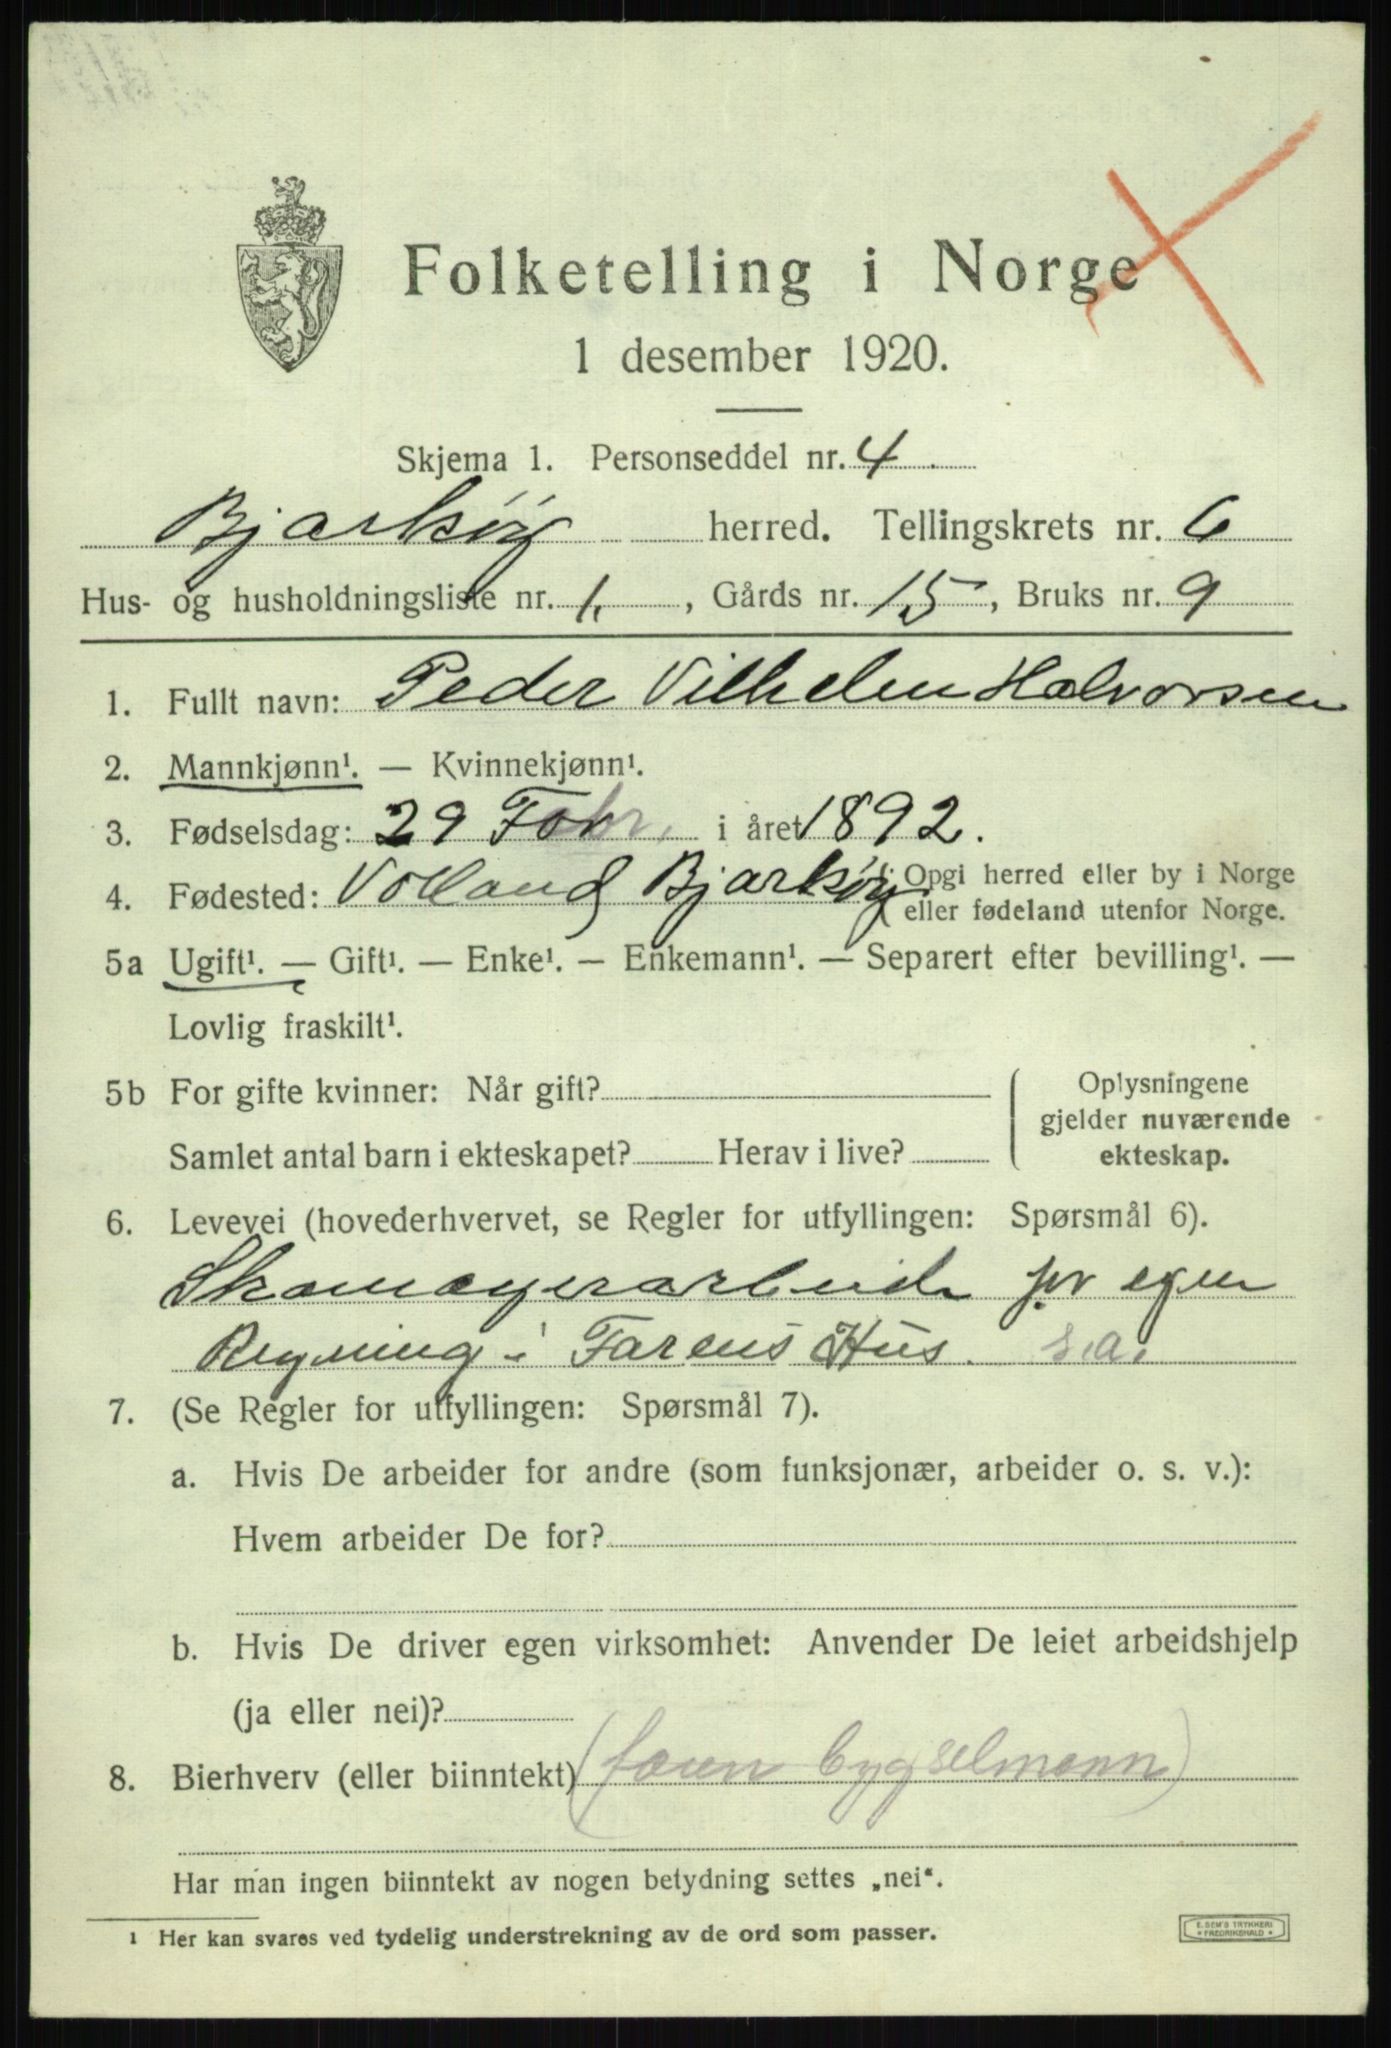 Folketelling i Norge
1 desember 1920.
Skjema 1. Personseddel nr. 4
Bjarkøy herred. Tellingskrets nr. 6
Hus- og husholdningsliste nr. 1. , Gårds nr. 15 , Bruks nr. 9
1. Fullt navn: Peder Vilhelm Halvorsen
2. Mannkjønn¹. — Kvinnekjønn¹.
3. Fødselsdag: 29 Febr. i året 1892.
4. Fødested: Volland Bjarkøy { Opgi herred eller by i Norge
eller fødeland utenfor Norge.
5a Ugift¹. — Gift¹. — Enke¹. — Enkemann¹. — Separert efter bevilling¹. —
Lovlig fraskilt¹.
5b For gifte kvinner: Når gift?
Samlet antal barn i ekteskapet? Herav i live?
Oplysningene
gjelder nuværende
ekteskap.
6. Levevei (hovederhvervet, se Regler for utfyllingen: Spørsmål 6).
Skomagerarbeide for egen
Regning i Farens Hus. s.a.
7. (Se Regler for utfyllingen: Spørsmål 7).
a. Hvis De arbeider for andre (som funksjonær, arbeider o. s. v.):
Hvem arbeider De for?
b. Hvis De driver egen virksomhet: Anvender De leiet arbeidshjelp
(ja eller nei)?
8. Bierhverv (eller biinntekt) (faren bygselmann)
Har man ingen biinntekt av nogen betydning settes „nei“.
1 Her kan svares ved tydelig understrekning av de ord som passer.
E. SEM'S TRYKKERI
* FREDRIKSHALD *